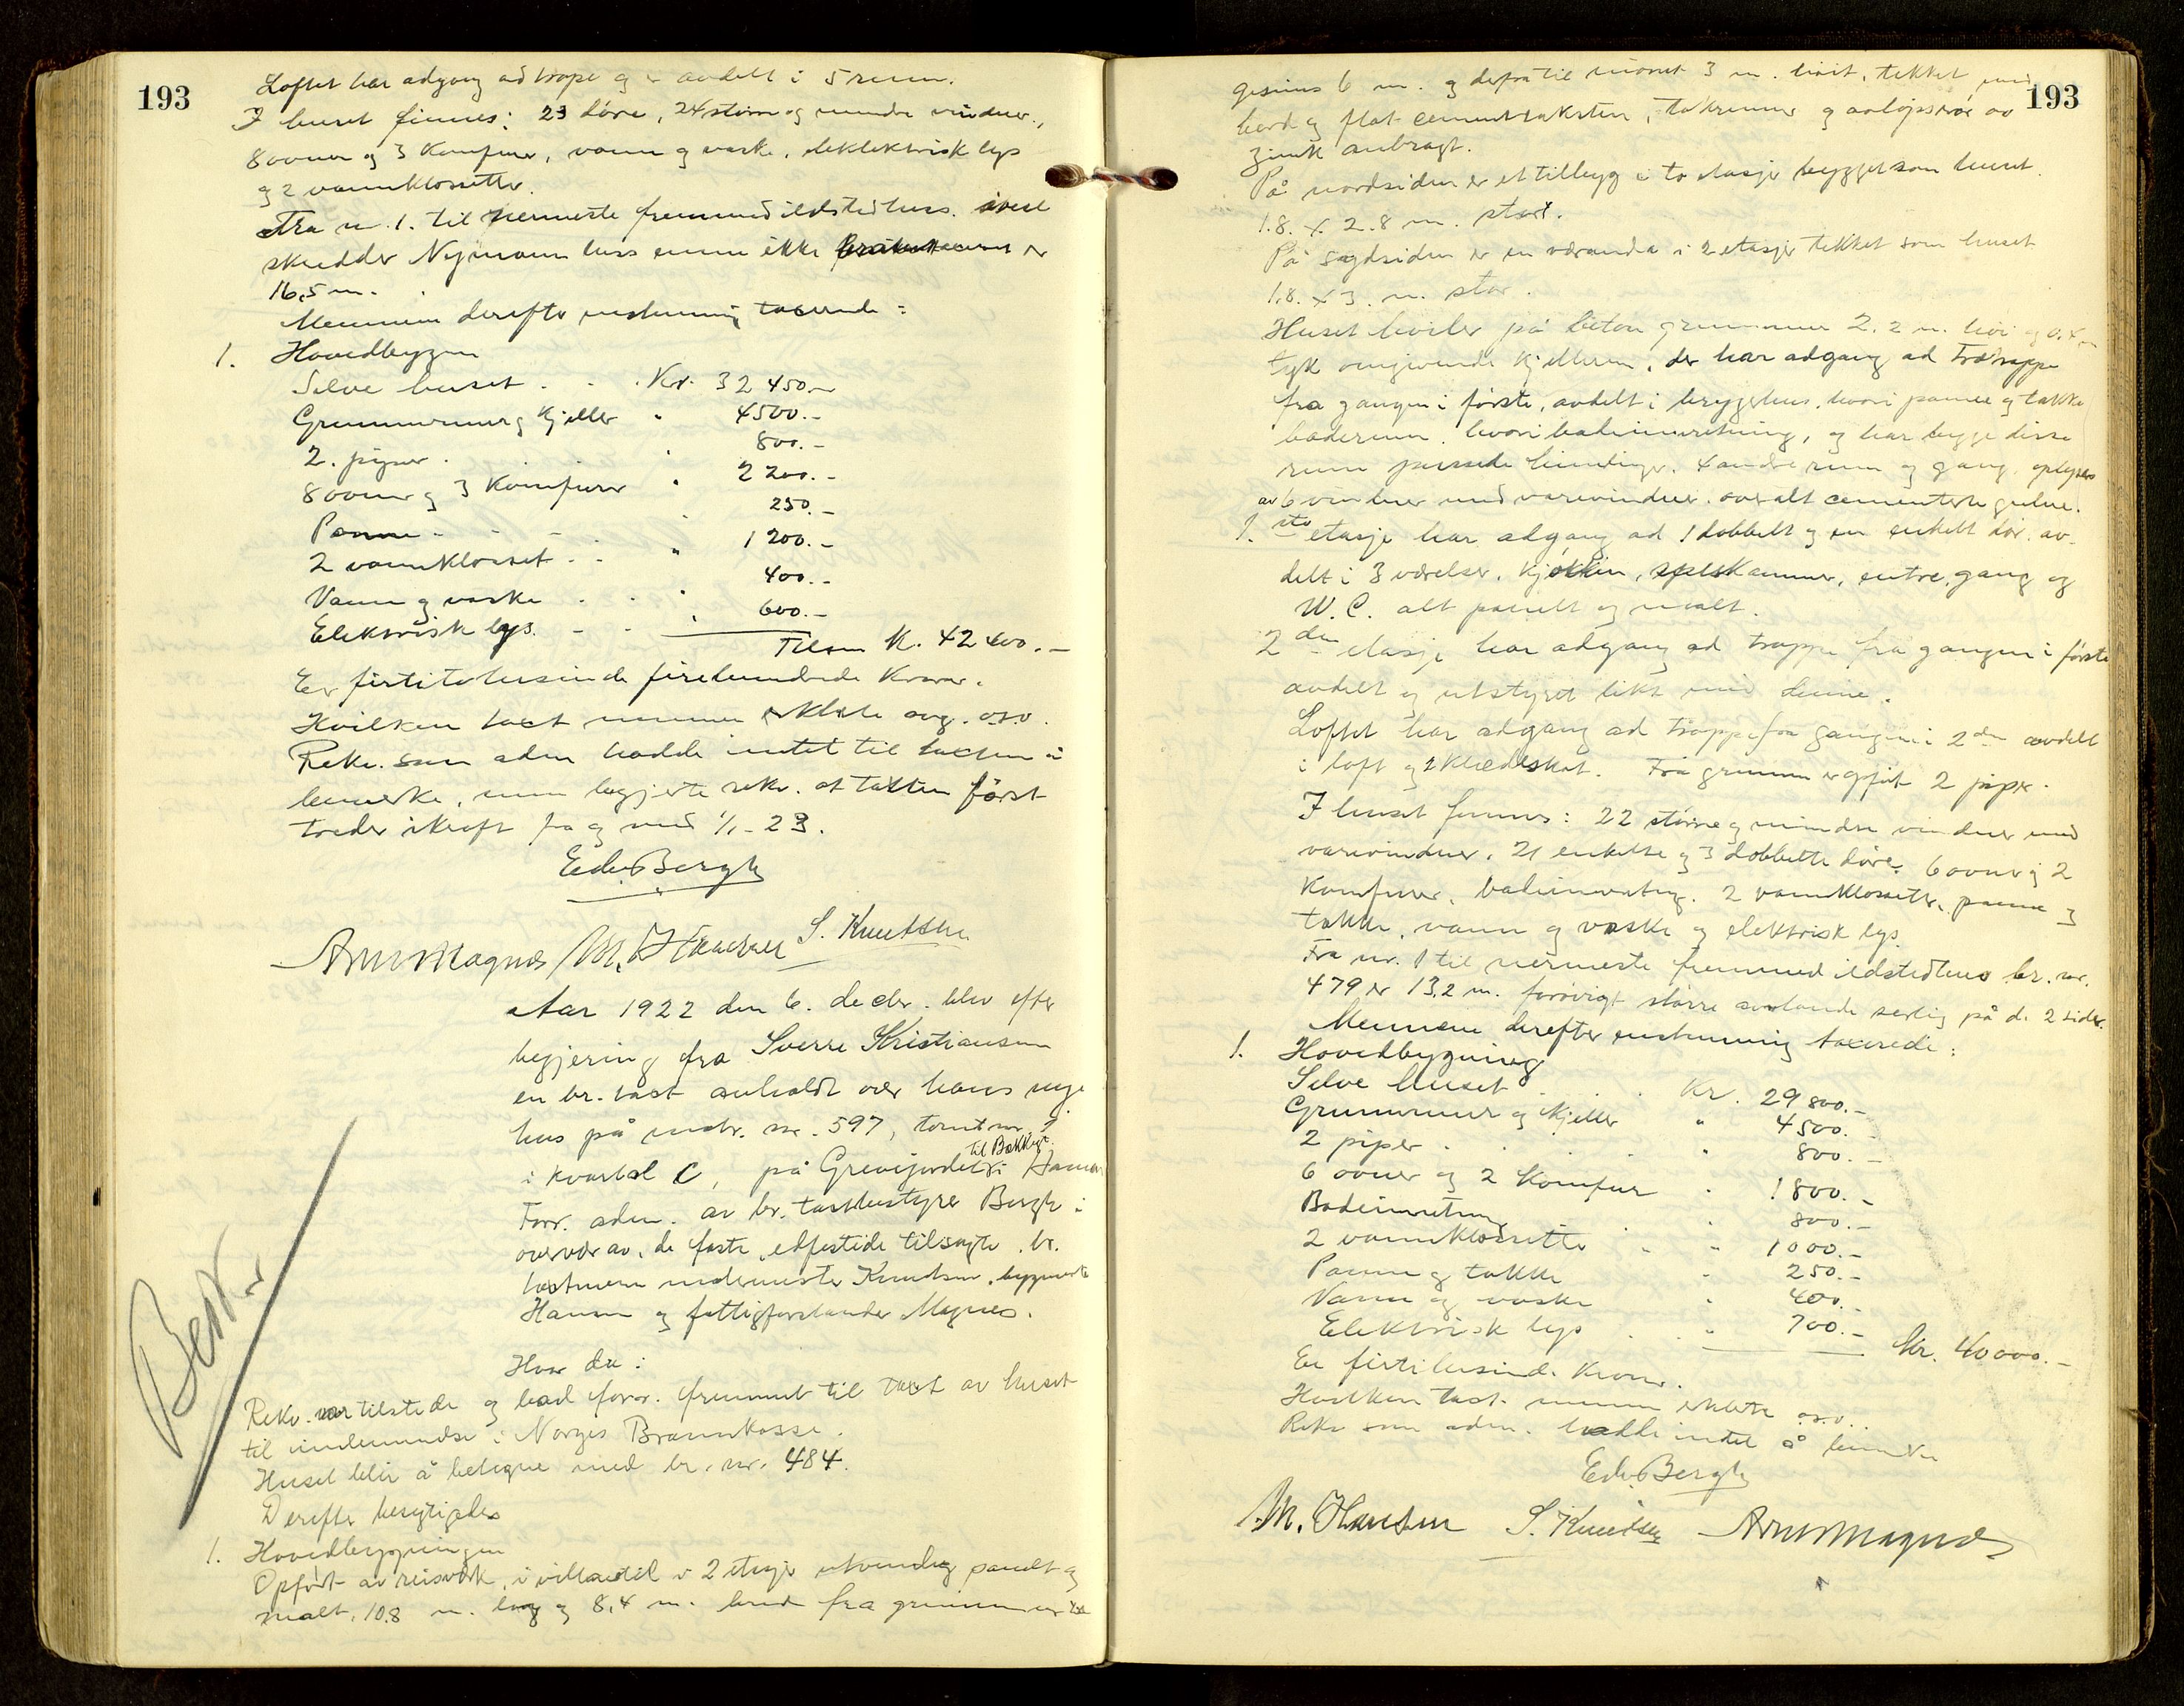 193
Loftet har adgang ad trope og er avdelt i 5 rum.
I huset finnes: 23 döre, 24 större og mindre vinduer.,
8 ovner og 3 komfyrer, vann og vaske, eleklektrisk lys
og 2 vannklosetter.
Fra nr. 1. til nermeste fremmed ildstedhus.
skredder Nymann hus ennu ikke er
16,5 m.
Mennene derefter enstemmig taxerede:
1. Hovedbygn
Selve huset . . . Kr. 32 450.-
Grunnmur og kjeller " 4500.-
2. piper . " 800.-
8 ovner og 3 komfyrer " 2 200.-
Panne . - - " 250.-
2 vannklosset . . " 1 200.-
Vann og vaske . . " 400.-
Elektrisk lys. - . " 600.-
Tilsm K. 42 400.-
Er firtitotusinde firehundrede Kroner.
Hvilken taxt mennene erklærte avg. osv.
Rekv. som aden hadde intet til taxten å
bemerke, men begjerte rekv. at taxten först
treder ikraft fra og med 1/1-23.
Edv. Bergh
Arne Magnæs M. Hansen S. Knutsen
Aar 1922 den 6. decbr. blev efter
begjering fra Sverre Kristiansen
en br. taxt avholdt over hans nye
hus på matr. nr. 597, tomt nr. 9
til Bakkegt.
i kvartal C, på Grevejordet i Hamar
Forr. aden. av br. taxtbestyrer Bergh i
overvær av, de faste, edfestede tilsagte br.
taxtmenn murermester Knudsen, bygmester
Hansen og fattigforstander Magnes.
Hvor da:
Rekv. var tilstede og bad forr. fremmet til taxt av huset
til indlemmelse i Norges Brannkasse.
Huset blir å betegne med br. nr. 484.
Derefter besigtigedes
1. Hovedbygningen
Opfört av reisverk, i villastil i 2 etasjer utvendig panelt og
malt, 10.8 m. lang og 8,4 m. bred fra grunnmur til
193
gesims 6 m. og derfra til mönet 3 m. höit, tekket med
bord og flat cementtaksten, takrenner og avlöpsrör av
zink anbragt.
På nordsiden er et tilbyg i to etasjer bygget som huset.
1.8. x 2.8 m. stort.
På sydsiden er en veranda i 2 etasjer tekket som huset
1.8. x 3. m. stor.
Huset hviler på beton grunnmur 2.2 m. höi og 0.4 m
tyk omgivende kjelleren, der har adgang ad trætrappe
fra gangen i förste, avdelt i bryggehus, hvori panne og takke
baderum. hvori badeinnretning, og har begge disse
rum pussede himlinger. 4 andre rum og gang, oplyses
av 6 vinduer med varevinduer. overalt cementerte gulve.
1.ste etasje har adgang ad 1 dobbelt og en enkelt dör. av-
delt i 3 værelser, kjökken, spiskammer, entre, gang og
W.C. alt panelt og malt.
2 den etasje har adgang ad trappe fra gangen i förste
avdelt og utstyret likt med denne.
Loftet har adgang ad trappe fra gangen i 2 den avdelt
i loft og 2 klædeskot. Fra grunnen opfört 2 piper.
I huset finnes: 22 större og mindre vinduer med
varevinduer, 21 enkelte og 3 dobbelte döre. 6 ovner og 2
komfyrer, badeinnretng. 2 vannklosetter, panne og
takke, vann og vaske og elektrisk lys.
Fra nr. 1 til nermeste fremmed ildstedhus br. nr.
479 er 13,2 m. forövrigt större avstande serlig på de 2 sider.
Mennene derefter enstemmig taxerede:
1. Hovedbygning
Selve huset . . . Kr. 29 800.-
Grunnmur og kjeller " 4500.-
2 piper . . . " 800.-
6 ovner og 2 komfyr " 1 800.-
Badeinnretning " 800.-
2 vannklosetter . . " 1 000.-
Panne og takke " 250.-
Vann og vaske " 400.-
Elektrisk lys . . " 700.-
Kr. 40 000.-
Er firtitusinde Kroner.
Hvilken taxt. mennene erklærte osv..
Rekv som aden. hadde intet å bemerke
Edv. Bergh
M. Hansen S. Knutsen Arne Magnæs